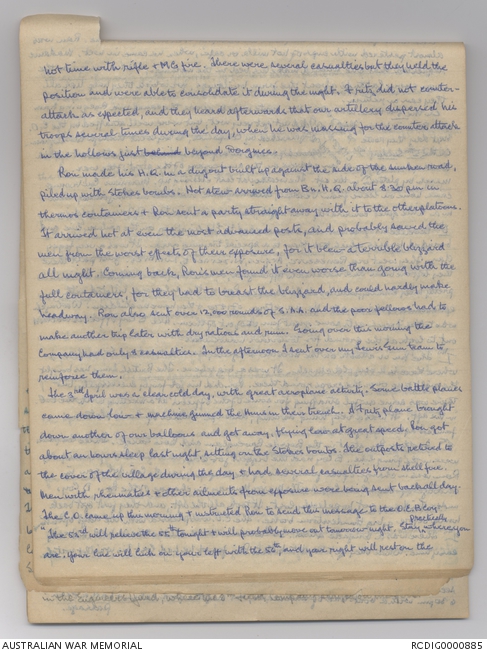 hot time with rifle + M.G fire. There were several casualties but they held the
position and were able to consolidate it during the night. Fritz did not counter-
attack as expected, and they heard afterwards that our artillery dispersed his
troops several times during the day, when he was massing for the counter attack
in the hollows just behind beyond Doignies.
Ron made his H.Q. in a dugout built up against the side of the sunken road,
piled up with Stokes bombs. Hot stew arrived from Bn. H.Q. about 8.30 pm in
thermos containers + Ron sent a party straight away with it to the other platoons.
It arrived hot at even the most advanced posts, and probably saved the
men from the worst effects of their exposure, for it blew a terrible blizzard
all night. Coming back, Ron's men found it even worse than going with the
full containers, for they had to breast the blizzard, and could hardly make
headway. Ron also sent over 12,000 rounds of S.A.A. and the poor fellows had to
make another trip later with dry rations and rum. Going over this morning the
Company had only 8 casualties. In the afternoon I sent over my Lewis Gun team to
reinforce them.
The 3rd April was a clear cold day, with great aeroplane activity. Some battle planes
came down low + machine gunned the Huns in their trench. A Fritz plane brought
down another of our balloons and got away, flying low at great speed. Ron got
about an hours sleep last night, sitting on the Stokes bombs. The outposts retired to
the cover of the village during the day + had several casualties from shell fire.
Men with rheumatics + other ailments from exposure were being sent back all day.
The C.O. came up this morning + instructed Ron to send this message to the O.C. B Coy:
"The 53rd will relieve the 55th tonight + will probably move out tomorrow night. Stay practically where you
are: your line will link on your left with the 56th, and your right will rest on the
AUSTRALIAN WAR MEMORIAL
RCDIG0000885